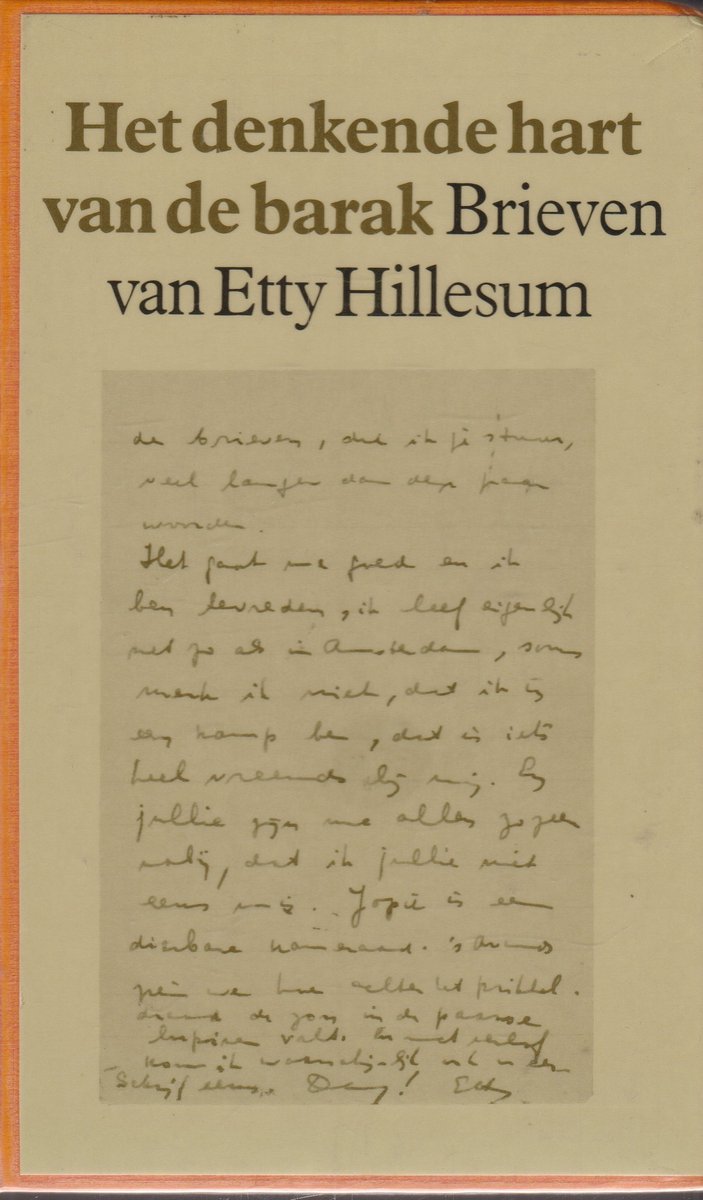 Het denkende hart
van de barak Brieven
van Etty Hillesum
de brieven, die ik je stuur,
veel langer dan deze paar
woorden.
Het gaat me goed en ik
ben tevreden, ik leef eigenlijk
net zo als in Amsterdam, soms
merk ik niet, dat ik in
een kamp ben, dat is iets
heel vreemds bij mij. En
jullie zijn me allen zozeer
nabij, dat ik jullie niet
eens mis. Jopie is een
dierbare kameraad. 's Avonds
zien we hoe achter het prikkel-
draad de zon in de paarse
lupinen valt. En met verlof
kom ik waarschijnlijk ook
Schrijf eens. Dag! Etty